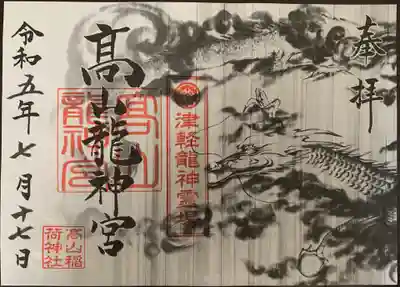 奉拝
津軽龍神霊場
髙山龍神宮
髙山龍神宮
令和五年七月十七日
高山稲荷神社